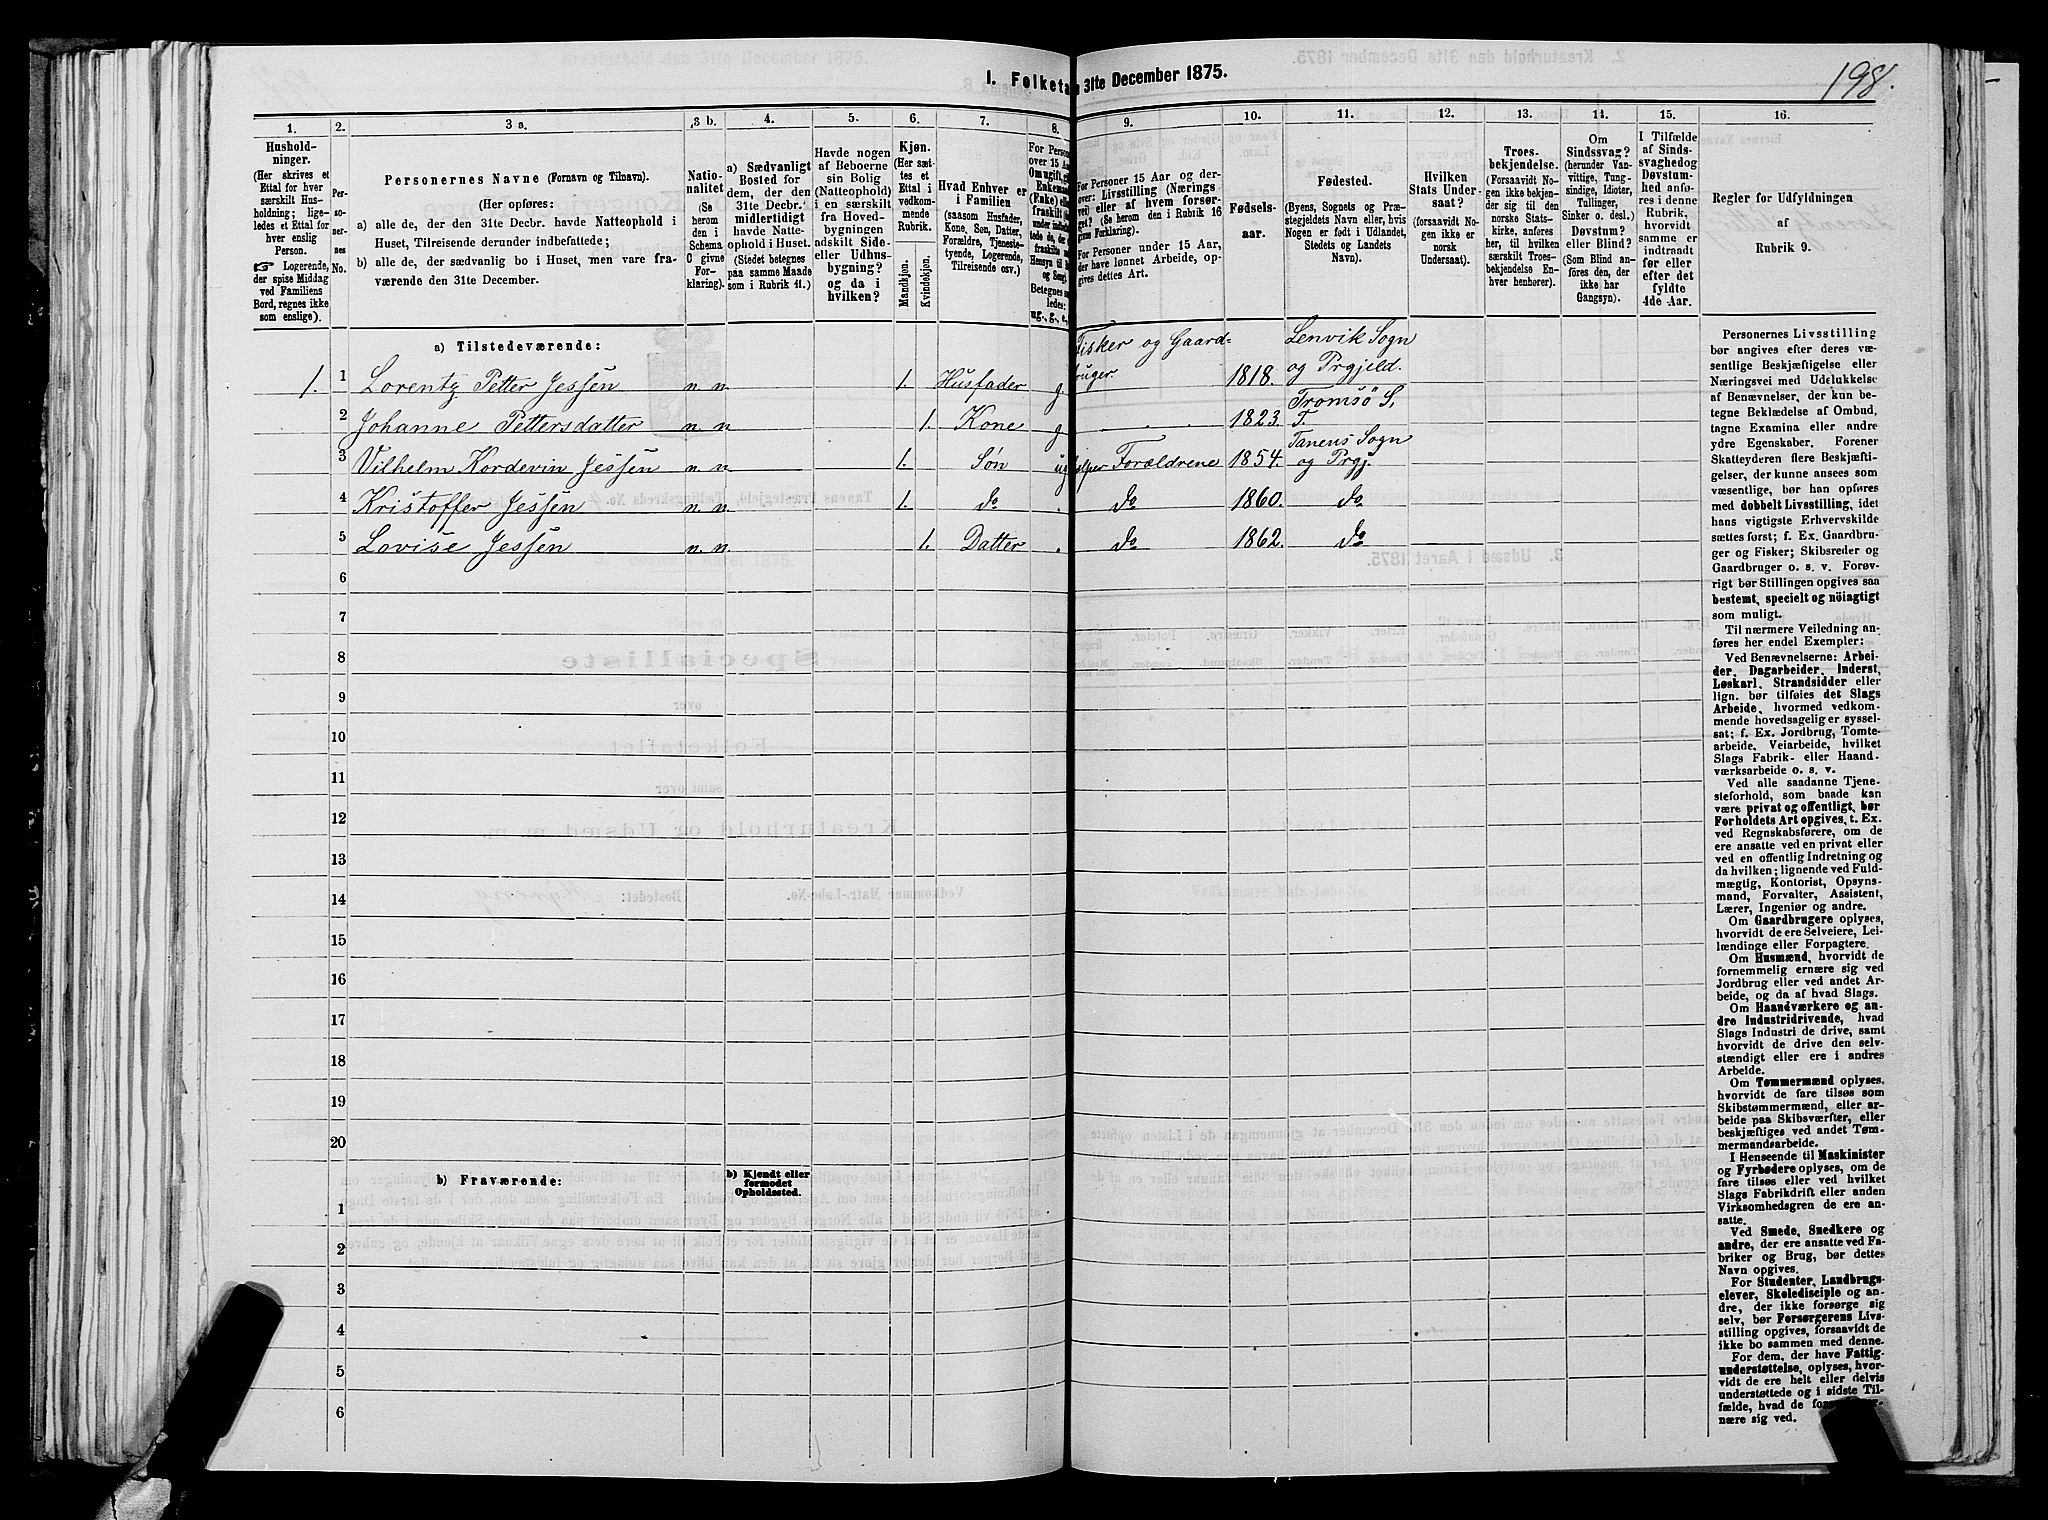 198.
I. Folketa 31te December 1875.
1. 2. 3 a. 3 b. 4. 5. 6. 7. 8. 9. 10. 11. 12. 13. 14. 15. 16.
Hushold-
ninger.
(Her skrives et
Ettal for hver
særskilt Hus-
holdning; lige-
ledes et Ettal for
hver enslig
Person.
☞ Logerende,
der spise Middag
ved Familiens
Bord, regnes ikke
som enslige).
Per-
so-
ner-
nes
No.
Personernes Navne (Fornavn og Tilnavn).
(Her opføres:
a) alle de, der den 31te Decbr. havde Natteophold i
Huset, Tilreisende derunder indbefattede;
b) alle de, der sædvanlig bo i Huset, men vare fra-
værende den 31te December.
Natio-
nalitet
(Se
herom
den i
Schema
O givne
For-
klaring).
a) Sædvanligt
Bosted for
dem, der den
31te Decbr.
midlertidigt
havde Natte-
ophold i Huset.
(Stedet betegnes
paa samme Maade
som i Rubrik 11.)
Havde nogen
af Beboerne
sin Bolig
(Natteophold)
i en særskilt
fra Hoved-
bygningen
adskilt Side-
eller Udhus-
bygning?
og da i
hvilken?
Kjøn.
(Her sæt-
tes et
Ettal i
vedkom-
mende
Rubrik.
Mandkjøn.
Kvindekjøn.
Hvad Enhver er
i Familien
(saasom Husfader,
Kone, Søn, Datter,
Forældre, Tjeneste-
tyende, Logerende,
Tilreisende osv.)
For Person
over 15 Aa
Om ugift, g
Enkema
(Enke) ell
fraskilt
under indbe
tede de,
fraskilte
Hensyn til
og Sen
Betegnes s
ledes:
ug., g., e.,
For Personer 15 Aar og der-
over: Livsstilling (Nærings-
vei) eller af hvem forsør-
get? (Se herom den i Rubrik 16
givne Forklaring).
For Personer under 15 Aar,
der have lønnet Arbeide, op-
gives dettes Art.
Fødsels-
aar.
Fødested.
(Byens, Sognets og Præ-
stegjeldets Navn eller, hvis
Nogen er født i Udlandet,
Stedets og Landets
Navn).
Hvilken
Stats Under-
saat?
(forsaavidt No-
gen ikke er
norsk
Undersaat).
Troes-
bekjendelse.
(Forsaavidt No-
gen ikke bekjen-
der sig til den
norske Stats-
kirke, anføres
her, til hvilken
særskilt Troes-
bekjendelse En-
hver henhører).
Om
Sindssvag?
(herunder Van-
vittige, Tung-
sindige, Idioter,
Tullinger,
Sinker o. desl.)
Døvstum?
eller Blind?
(Som Blind an-
føres den, der
ikke har
Gangsyn).
I Tilfælde
af Sinds-
svaghed og
Døvstum-
hed anfø-
res i denne
Rubrik,
hvorvidt
samme er
indtraadt
før eller
efter det
fyldte
4de Aar.
Regler for Udfyldningen
af
Rubrik 9.
a) Tilstedeværende:
1. 1 Lorentz Petter Jessen n. n. 1. Husfader g Fisker og Gaard=bruger. 1818. Lenvik Sogn og Prgjeld.
2 Johanne Pettersdatter n. n. 1. Kone g 1823. Tromsö S. T.
3 Vilhelm Kordevin Jessen n. n. 1. Søn ug Forældrene 1854. Tanens Sogn og Prgj.
4 Kristoffer Jessen n. n. 1. do do 1860. do
5 Lovise Jessen n. n. 1. Datter do 1862. do
6
7
8
9
10
11
12
13
14
15
16
17
18
19
20
b) Fraværende:
b) Kjendt eller
formodet
Opholdssted.
1
2
3
4
5
6
Personernes Livsstilling
bør angives efter deres væ-
sentlige Beskjæftigelse eller
Næringsvei med Udelukkelse
af Benævnelser, der kun be-
tegne Beklædelse af Ombud,
tagne Examina eller andre
ydre Egenskaber. Forener
Skatteyderen flere Beskjæfti-
gelser, der kunne ansees som
væsentlige, bør han opføres
med dobbelt Livsstilling, idet
hans vigtigste Erhvervskilde
sættes først; f. Ex. Gaardbru-
ger og Fisker; Skibsreder og
Gaardbruger o. s. v. Forøv-
rigt bør Stillingen opgives saa
bestemt, specielt og nöiagtigt
som muligt.
Til nærmere Veiledning an-
føres her endel Exempler:
Ved Benævnelserne: Arbei-
der, Dagarbeider, Inderst,
Løskarl, Strandsidder eller
lign. bør tilføies det Slags
Arbeide, hvormed vedkom-
mende hovedsagelig er syssel-
sat; f. Ex. Jordbrug, Tomte-
arbeide, Veiarbeide, hvilket
Slags Fabrik- eller Haand-
værksarbeide o. s. v.
Ved alle saadanne Tjene-
steforhold, som baade kan
være privat og offentligt, bør
Forholdets Art opgives, t. Ex.
ved Regnskabsførere, om de
ere ansatte ved en privat eller
ved en offentlig Indretning og
da hvilken; lignende ved Fuld-
mægtig, Kontorist, Opsyns-
mand, Forvalter, Assistent,
Lærer, Ingeniør og andre.
Om Gaardbrugere oplyses,
hvorvidt de ere Selveiere, Lei-
lændinge eller Forpagtere.
Om Husmænd, hvorvidt de
fornemmelig ernære sig ved
Jordbrug eller ved andet Ar-
beide, og da af hvad Slags.
Om Haandværkere og an-
dre Industridrivende, hvad
Slags Industri de drive, samt
hvorvidt de drive den selv-
stændigt eller ere i andres
Arbeide.
Om Tømmermænd oplyses,
hvorvidt de fare tilsøs som
Skibstømmermænd, eller ar-
beide paa Skibsværfter, eller
beskjæftiges ved andet Tøm-
mermandsarbeide.
I Henseende til Maskinister
og Fyrbødere oplyses, om de
fare tilsøs eller ved hvilket
Slags Fabrikdrift eller anden
Virksomhedsgren de ere an-
satte.
Ved Smede, Snedkere og
andre, der ere ansatte ved Fa-
briker og Brug, bør dettes
Navn opgives.
For Studenter, Landbrugs-
elever, Skoledisciple og an-
dre, der ikke forsørge sig
selv, bør Forsørgerens Livs-
stilling opgives, forsaavidt de
ikke bo sammen med denne.
For dem, der have Fattig-
understøttelse, oplyses, hvor-
vidt de ere helt eller delvis
understøttede og i sidste Til-
fælde, hvad de
nære sig ved.